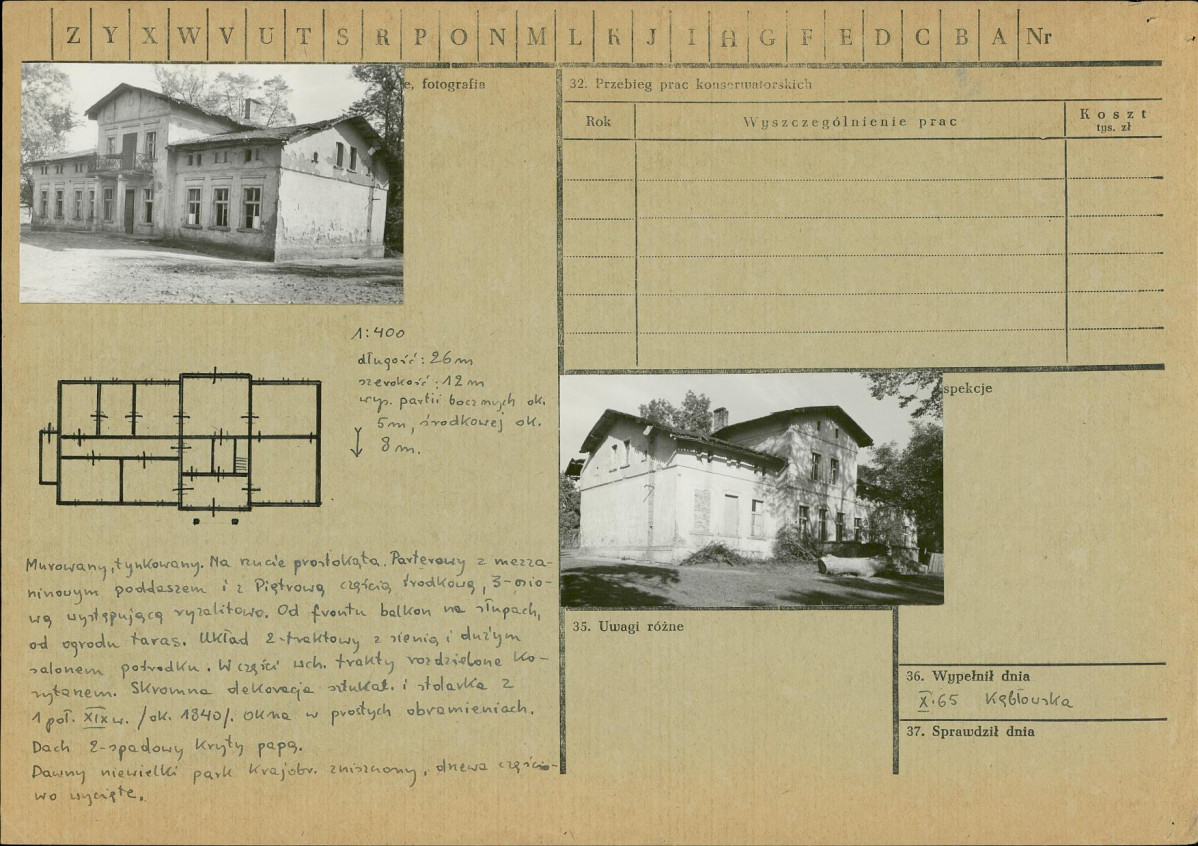 Z Y X W V U T S R P O N M L K J I H G F E D C B A Nr
e, fotografia
1:400
długość: 26 m
szerokość: 12 m
wys. partii bocznych ok.
5 m, środkowej ok.
8 m.
Murowany, tynkowany. Na rzucie prostokąta. Parterowy z mezza-
ninowym poddaszem i z Piętrową częścią środkową, 3-osio-
wą występującą ryzalitowo. Od frontu balkon na słupach,
od ogrodu taras. Układ 2-traktowy z sienią i dużym
salonem pośrodku. W części wch. trakty rozdzielone ko-
rytarzem. Skromna dekoracja sztukat. i stolarka z
1 poł. XIX w. /ok. 1840/. Okna w prostych obramieniach.
Dach 2-spadowy kryty papą.
Dawny niewielki park krajobr. zniszczony, drzewa częścio-
wo wycięte.
32. Przebieg prac konserwatorskich
Rok Wyszczególnienie prac Koszt
tys. zł
spekcje
35. Uwagi różne
36. Wypełnił dnia
X.65 Kąbłowska
37. Sprawdził dnia